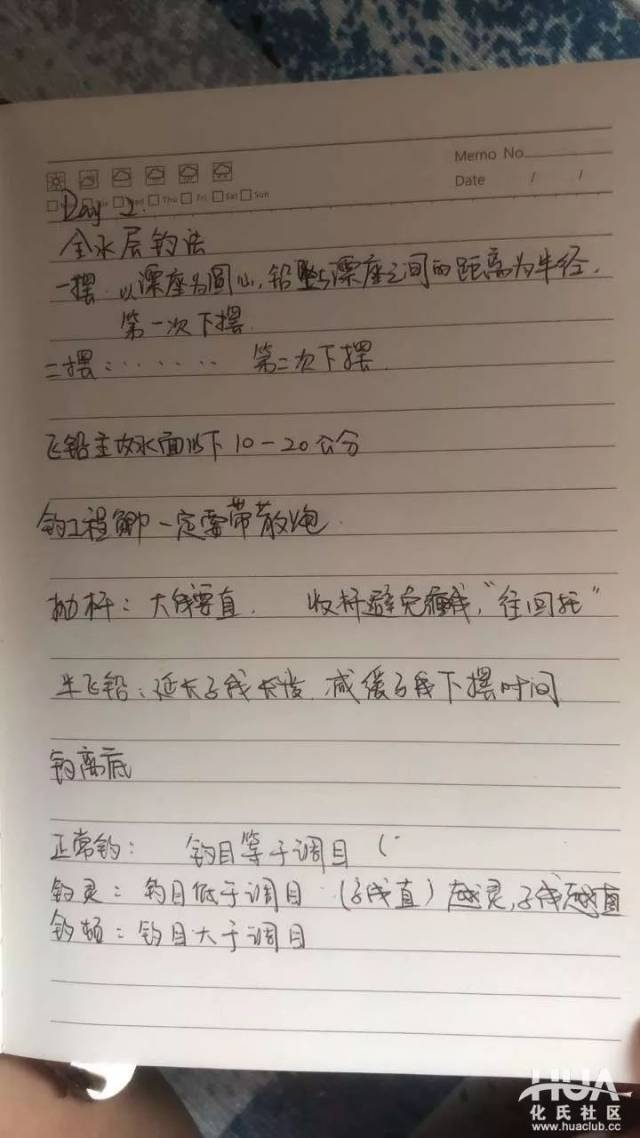 Memo No.
Date / /
Thu Fri Sat Sun
Day 2.
全水层钓法
一摆 以漂座为圆心,铅坠与漂座之间的距离为半径.
第一次下摆
二摆:...... 第二次下摆.
飞铅主攻水面以下10-20公分
钓工程鲫一定要带散炮.
抛杆: 大线要直. 收杆避免缠线,"往回托"
半飞铅:延长子线长度 减缓子线下摆时间
钓离底
正常钓: 钓目等于调目 (
钓灵: 钓目低于调目 (子线直) 越灵,子线越直
钓顿: 钓目大于调目
HUA
化氏社区
www.huaclub.cc